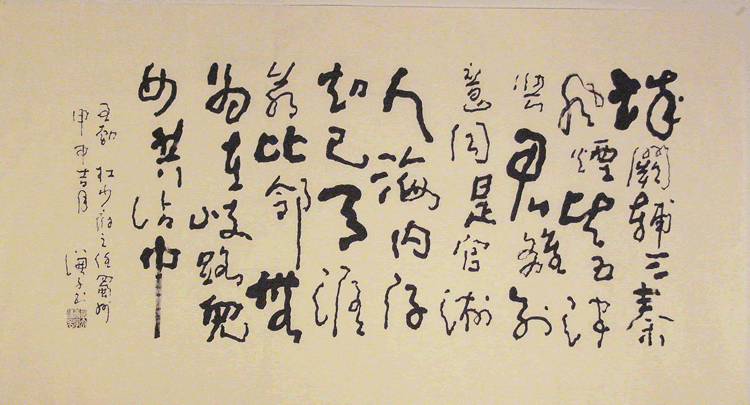 城闕輔三秦
風煙望五津
與君離別
意同是宦游
人海内存
知己天涯
若比鄰無
為在岐路兒
女共沾巾
王勃 杜少府之任蜀州
甲申